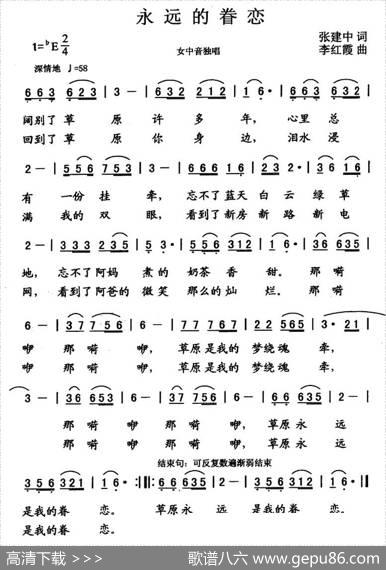 永远的眷恋
1=♭E 2/4
女中音独唱
张建中 词
李红霞 曲
深情地 ♩=58
6 6 3 6 2 3 | 3 - | 6 6 3 1 2 | 3 - | 6 6 3 6 2 3 |
阔别了草原许多年，心里总
回到了草原你身边，泪水浸
2 - | 5 5 6 7 5 3 | 3 - | 6 6 6 1 6 | 2 3 2· | 3 6 1 5 |
有一份挂牵，忘不了蓝天白云绿草
满我的双眼，看到了新房新路新电
2 - | 3 3 3 2 3 5 | 5 3· | 5 5 6 3 1 2 | 1 6· | 3 6 3 |
地，忘不了阿妈煮的奶茶香甜。那嗬
网，看到了阿爸的微笑那么的灿烂。那嗬
6 - | 3 7 7 5 6 | 6 - | 7 7 7 6 7 | 2 2 5 6 5 | 3· 2 1 |
咿那嗬咿，草原是我的梦绕魂牵，
咿那嗬咿，草原是我的梦绕魂牵，
3 - | 3 6 3 | 6 - | 3 7 7 5 6 | 6 - | 6 6 6 3 5 | 2 - |
那嗬咿那嗬咿，草原永远
那嗬咿那嗬咿，草原永远
结束句：可反复数遍渐弱结束
3 5 6 3 2 1 | 1 6· :|| 6 6 6 3 5 | 2 - | 3 5 6 3 1 2 | 1 6· ||
是我的眷恋。草原永远是我的眷恋。
是我的眷恋。
高清下载 >>>
歌谱八六 www.gepu86.com